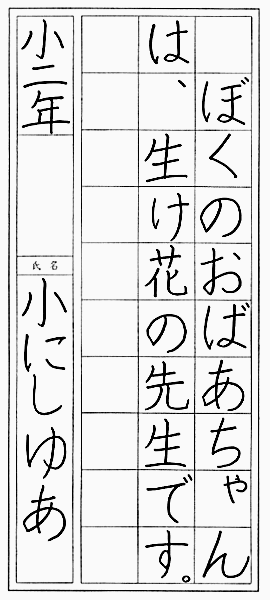 ぼくのおばあちゃん
は、生け花の先生です。
小二年
氏名
小にしゆあ